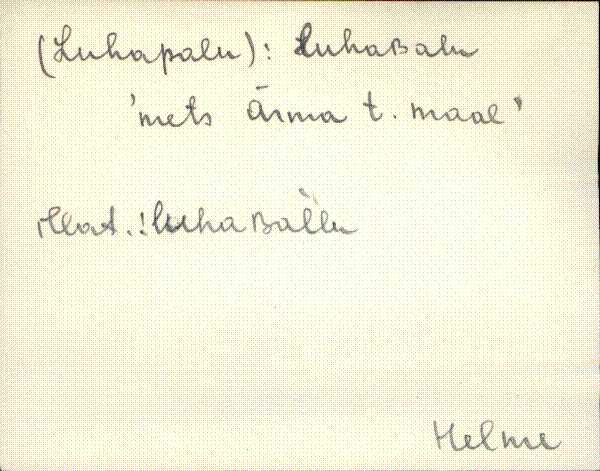 (Luhapalu): luhaʙalu
'mets Ärma t. maal'
illat.: luhaʙàllu
Helme